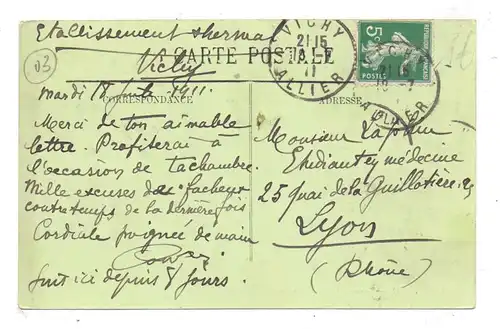 Etablissement thermal
Vichy
CARTE POSTALE
mardi 18 1911.
CORRESPONDANCE
Merci de ton aimable
lettre. Profiterai à
l'occasion de ta chambre.
Mille excuses du facheux
contretemps de la dernière fois
Cordiale poignée de main
Suis ici depuis 8 jours.
03
VICHY
21 15
11
ALLIER
5c
REPUBLIQUE FRANÇAISE
POSTES
ADRESSE
Monsieur
Etudiant en médecine
25 quai de la Guillotière
Lyon
(Rhône)